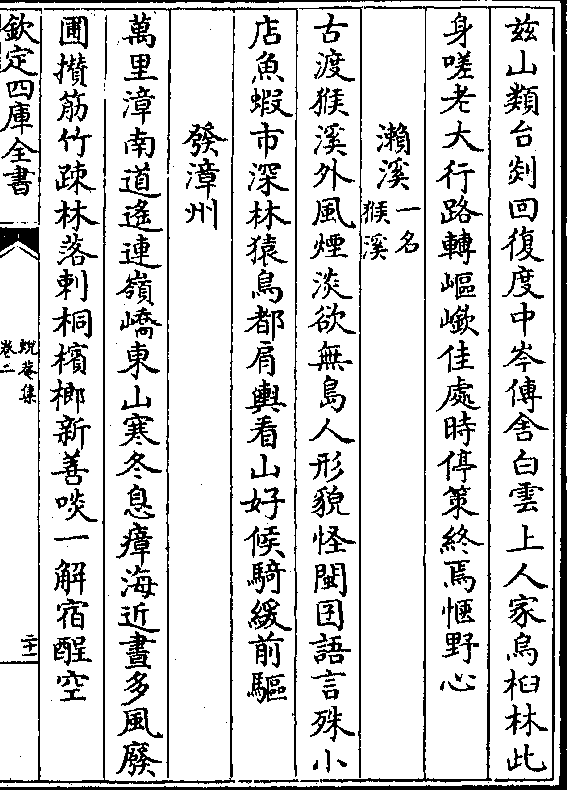 兹山類台剡回復度中岑傅舍白雲上人家烏桕林此
身嗟老大行路轉嶇嶔佳處時停策終焉愜野心
瀨溪一名猴溪
古渡猴溪外風煙淡欲無島人形貌怪閩囝語言殊小
店魚蝦市深林猿鳥都肩輿看山好候騎緩前驅
發漳州
萬里漳南道遙連嶺嶠東山寒冬息瘴海近晝多風廢
圃攢筋竹疎林落刺桐檳榔新善啖一解宿酲空
欽定四庫全書
蛻菴集
卷二
二十一